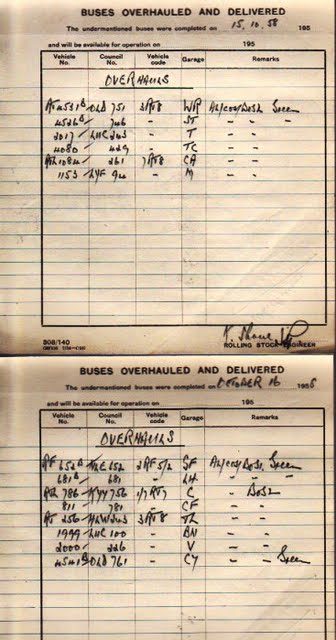 BUSES OVERHAULED AND DELIVERED
The undermentioned buses were completed on 15.10.58 195
and will be available for operation on 195
Vehicle No. Council No. Vehicle code Garage Remarks
OVERHAULS
RT 4531B OLD 751 3RT8 WR
4526B 746 - ST - -
2017 LUC 243 - T - -
4080 429 - TC - -
1084 261 7RT8 CA - -
1153 LYF 94 - M - -
308/140
ROLLING STOCK ENGINEER
BUSES OVERHAULED AND DELIVERED
The undermentioned buses were completed on OCTOBER 16 1958
and will be available for operation on 195
Vehicle No. Council No. Vehicle code Garage Remarks
OVERHAULS
RF 652B NLE 652 2RF5/2 SF
681B 681 - LH - -
786 KYY 756 C -
811 781 - CF - -
RT 256 HLW 243 3RT8 TL - -
1999 LUC 100 - BN - -
2000 226 - V - -
4541B OLD 761 - CY -